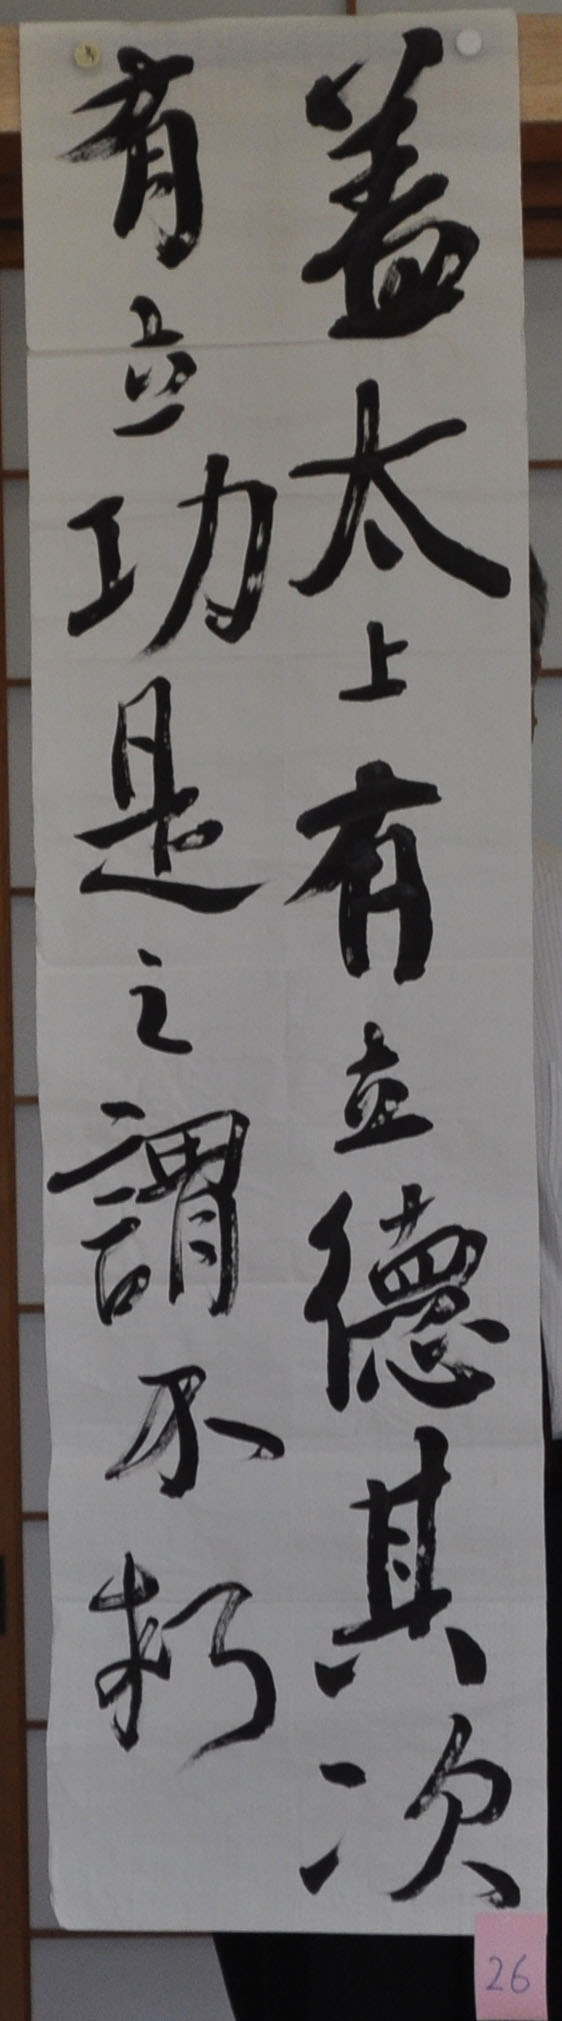 蓋太上有立德其次
有立功是之謂不朽
26